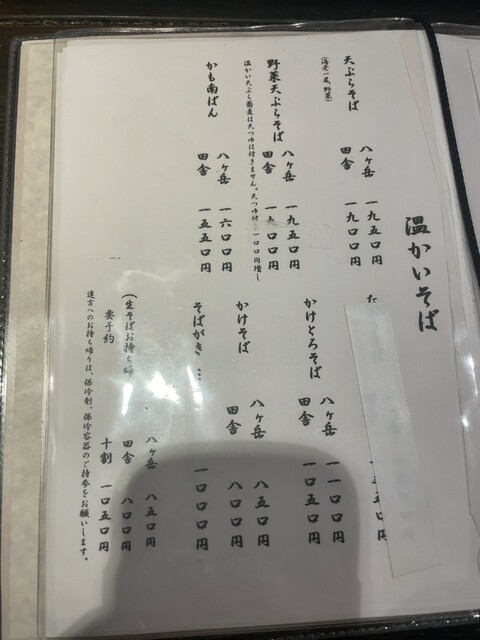 温かいそば
天ぷらそば
(海老一尾、野菜)
八ヶ岳 一九五〇円
田舎 一九〇〇円
野菜天ぷらそば
八ヶ岳 一九五〇円
田舎 一九〇〇円
温かい天ぷら蕎麦は天つゆは付きません。天つゆ付 一〇〇円増し
かも南ばん
八ヶ岳 一六〇〇円
田舎 一五五〇円
た
五〇円
かけとろそば
八ヶ岳 一一〇〇円
田舎 一〇五〇円
かけそば
八ヶ岳 八五〇円
田舎 八〇〇円
そばがき … 一〇〇〇円
(生そばお持ち帰
要予約
八ヶ岳 八五〇円
田舎 八〇〇円
十割 一〇五〇円
遠方へのお持ち帰りは、保冷剤、保冷容器のご持参をお願いします。